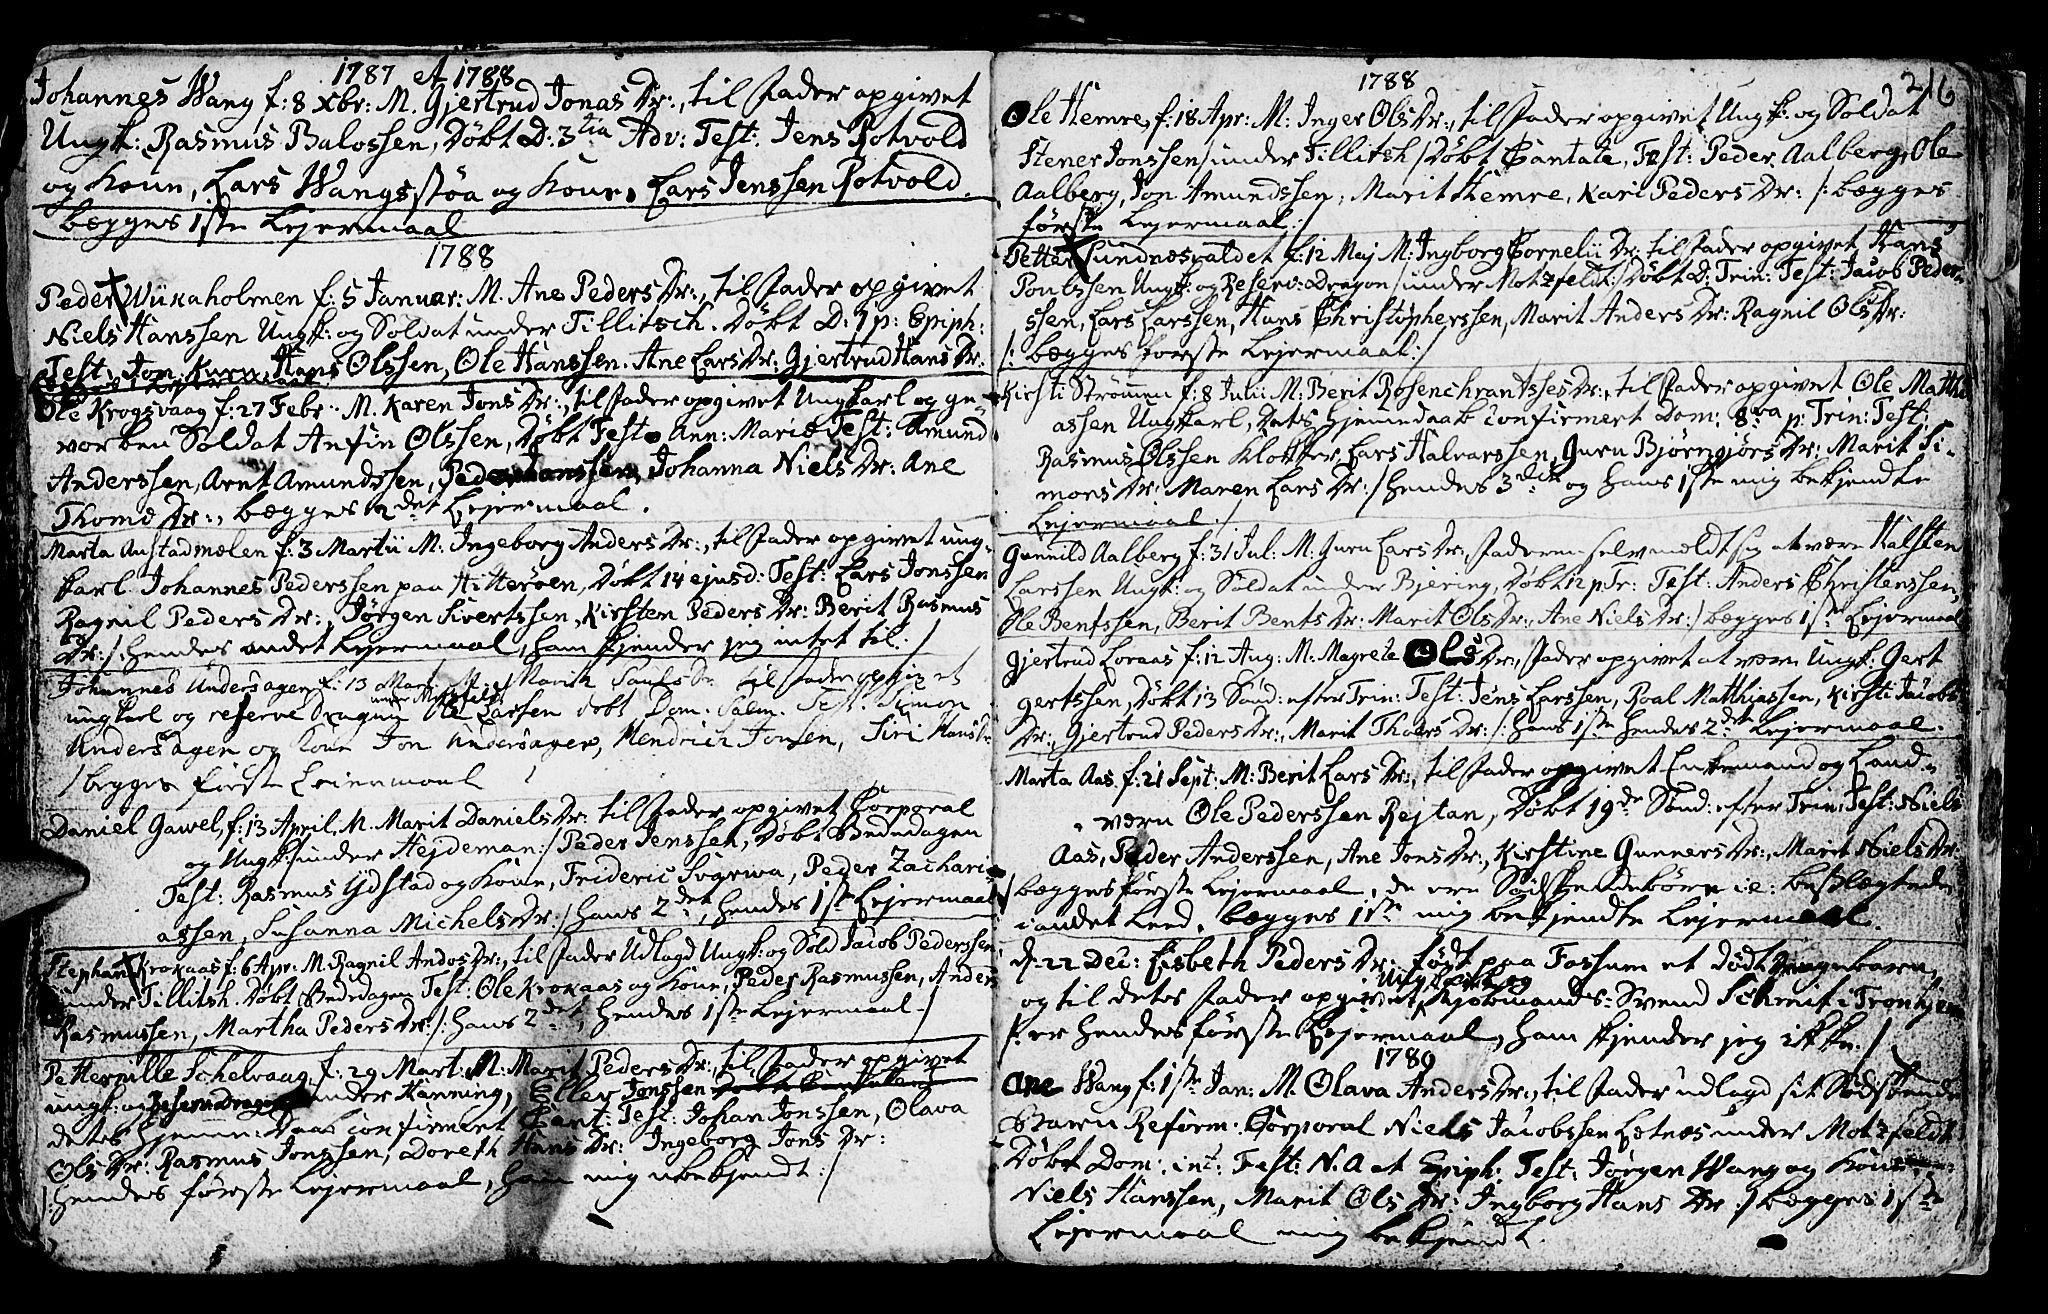 1787 et 1788
Johannes Wang f: 8 Xbr: M. Gjertrud Jonas Dr:, til fader opgivet
Ungk: Rasmus Balossen, Døbt D: 3tia Adv: Test: Jens Rotvold
og Kone, Lars Wangsstøa og Kone, Lars Jenssen Rotvold.
begges 1ste Lejermaal
1788
Peder Wukaholmen f: 5 Januar: M. Ane Peders Dr:, til fader opgivet
Niels Hanssen Ungk: og Soldat under Tillitsch. Døbt D: 1 p: Epiph:
Test: Jon Hans Olssen, Ole Hanssen. Ane Lars Dr: Gjertrud Hans Dr:
Ole Krogsvaag f: 27 Febr: M. Karen Jons Dr:, til fader opgivet Ungkarl og ge-
vorben Soldat Anfin Olssen, Døbt Festo Ann: Mariæ Test: Amund
Anderssen, Arnt Amundssen, Peder Hanssen, Johanna Niels Dr: Ane
Thomæ Dr:, begges 2det Lejermaal.
Marta Austadmælen f: 3 Martii M: Ingeborg Anders Dr:, til fader opgivet ung-
karl Johannes Pederssen paa Hitterøen, Døbt 14 ejusd: Test: Lars Jonssen
Ragnil Peders Dr:, Jørgen Sivertssen, Kirsten Peders Dr: Berit Rasmus
Dr: /: hendes andet Lejermaal, ham kjender jeg intet til :/
Johannes Undersagen f: 13 Mart M: Marit Pauls Dr til fader opgivet
under Motzfeldt
ungkarl og reserve Dragun Ole Larsen døbt Dom. Palm. Test. Simon
Undersagen og Kone Jon Undersagen, Hendrich Jonsen, Siri Hans Dr
/ begges første Leiermaal
Daniel Gawel, f: 13 April, M. Marit Daniels Dr: til fader opgivet Corporal
og Ungk: /under Hejdeman:/ Peder Jenssen, Døbt Bededagen
Test: Rasmus Ydstad og Kone, Frideric Svgrwa, Peder Zachari-
assen, Susanna Michels Dr: /: hans 2det, hendes 1ste Lejermaal
Stephan Krokaas f: 6 Apr: M. Ragnil Andos Dr:, til fader Udlagd Ungk: og Sold Jacob Pederssen
under Tillitsh. Døbt Bededagen Test: Ole Krokaas og Kone, Peder Rasmussen, Anders
Rasmussen, Martha Peders Dr: /: hans 2det, hendes 1ste Lejermaal :/
Petternille Schelvaag, f: 29 Mart: M: Marit Peders Dr:, til fader opgivet
ungk: og Reserv: Dragon under Hanning, Eller Jonssen
dets hjemme: Daab Confirmert Cant: Test: Johan Jonssen, Olava
Ols Dr: Rasmus Jonssen, Doreth Hans Dr: Ingeborg Jons Dr:
/: hendes første Lejermaal, ham mig ubekjendt :/
1788
216
Ole Hemre, f: 18 Apr: M: Inger Ols Dr:, til fader opgivet Ungk: og Soldat
Stener Jonssen /under Tillitsh/ Døbt Cantate, Test: Peder Aalberg, Ole
Aalberg, Jon Amundssen, Marit Hemre, Kari Peders Dr: /: begges
første Lejermaal :/
Petter Sundnæsvaldet f: 12 Maj M: Ingborg Cornelii Dr: til fader opgivet Hans
Pontssen Ungk: og Reserv: Dragon /under Motzfeldt:/ Døbt D: Trin: Test: Jacob Peder-
ssen, Lars Larssen, Hans Christopherssen, Marit Anders Dr: Ragnil Ols Dr:
/: begges første Lejermaal :/
Kirsti Strømmen f: 8 Julii M: Berit Rosenchrantsses Dr:, til fader opgivet Ole Matthi
assen Ungkarl, Dets Hjemedaab Confirmert Dom: 8va p: Trin: Test:
Rasmus Olssen Klokker, Lars Halvarssen, Guru Bjørngjørs Dr: Marit Si-
mons Dr: Maren Lars Dr: /: hendes 3die og hans 1ste mig bekjendte
Lejermaal :/
Gunnild Aalberg f: 31 Jul: M: Guru Lars Dr, faderen selv meldt sig at være Halsten
Larssen Ungk: og Soldat under Bjering, Døbt 12 p Tr: Test: Anders Christenssen,
Ole Bentssen, Berit Bents Dr: Marit Ols Dr:, Ane Niels Dr: /: begges 1ste Lejermaal
Gjertrud Loraas f: 12 Aug: M: Magrete Ols Dr:, fader opgivet at være Ungk: Gert
Gertssen, Døbt 13 Sønd: efter Trin: Test: Jens Larssen, Roal Matthiassen, Kirsti Jacobs
Dr:, Gjertrud Peders Dr:, Marit Thoers Dr: /: hans 1ste hendes 2det Lejermaal.
Marta Aas f: 21 Sept: M: Berit Lars Dr:, til fader opgivet Enkemand og Land-
værn Ole Pederssen Rejtan, Døbt 19de Sønd: efter Trin: Test: Niels
Aas, Peder Anderssen, Ane Jons Dr:, Kirstine Gunners Dr:, Marit Niels Dr:
/: begges første Lejermaal, de ere Sødskendebørn ie: beslegtede
i andet Leed. begges 1ste mig bekjendte Lejermaal.
d: 22 Dec: Lisbeth Peders Dr: født paa Fossum et dødt Drengebarn,
Ungkarl og
og til dets fader opgivet Kjøbmands-Svend Schmit i Tronhjem
/: er hendes første Lejermaal, ham kjender jeg ikke :/
1789
Ane Wang f: 1ste Jan: M. Olava Anders Dr:, til fader udlagd sit Sødskende
Barn Reform. Corporal Niels Jacobssen Letnæs under Motzfeldt
Døbt Dom: int: Fest: N. A et Epiph: Test: Jørgen Wang og Kone
Niels Hanssen, Marit Ols Dr: Ingborg Hans Dr /: begges 1ste
Lejermaal mig bekjendt.